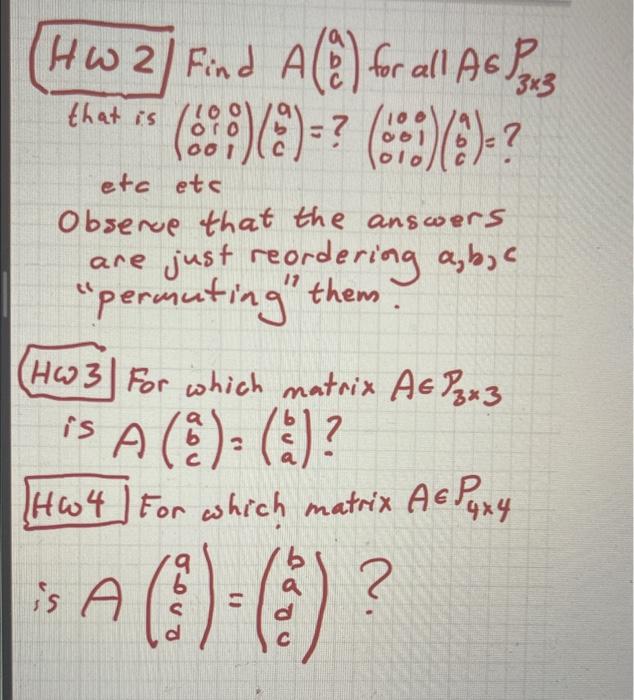 HW 2 Find A(a b c) for all A∈P3×3
that is (1 0 0 0 1 0 0 0 1)(a b c)=? (1 0 0 0 0 1 0 1 0)(a b c)=?
etc etc
Observe that the answers
are just reordering a,b,c
"permuting" them.
HW3 For which matrix A∈P3×3
is A(a b c)=(b c a)?
HW4 For which matrix A∈P4×4
is A(a b c d)=(b a d c)?